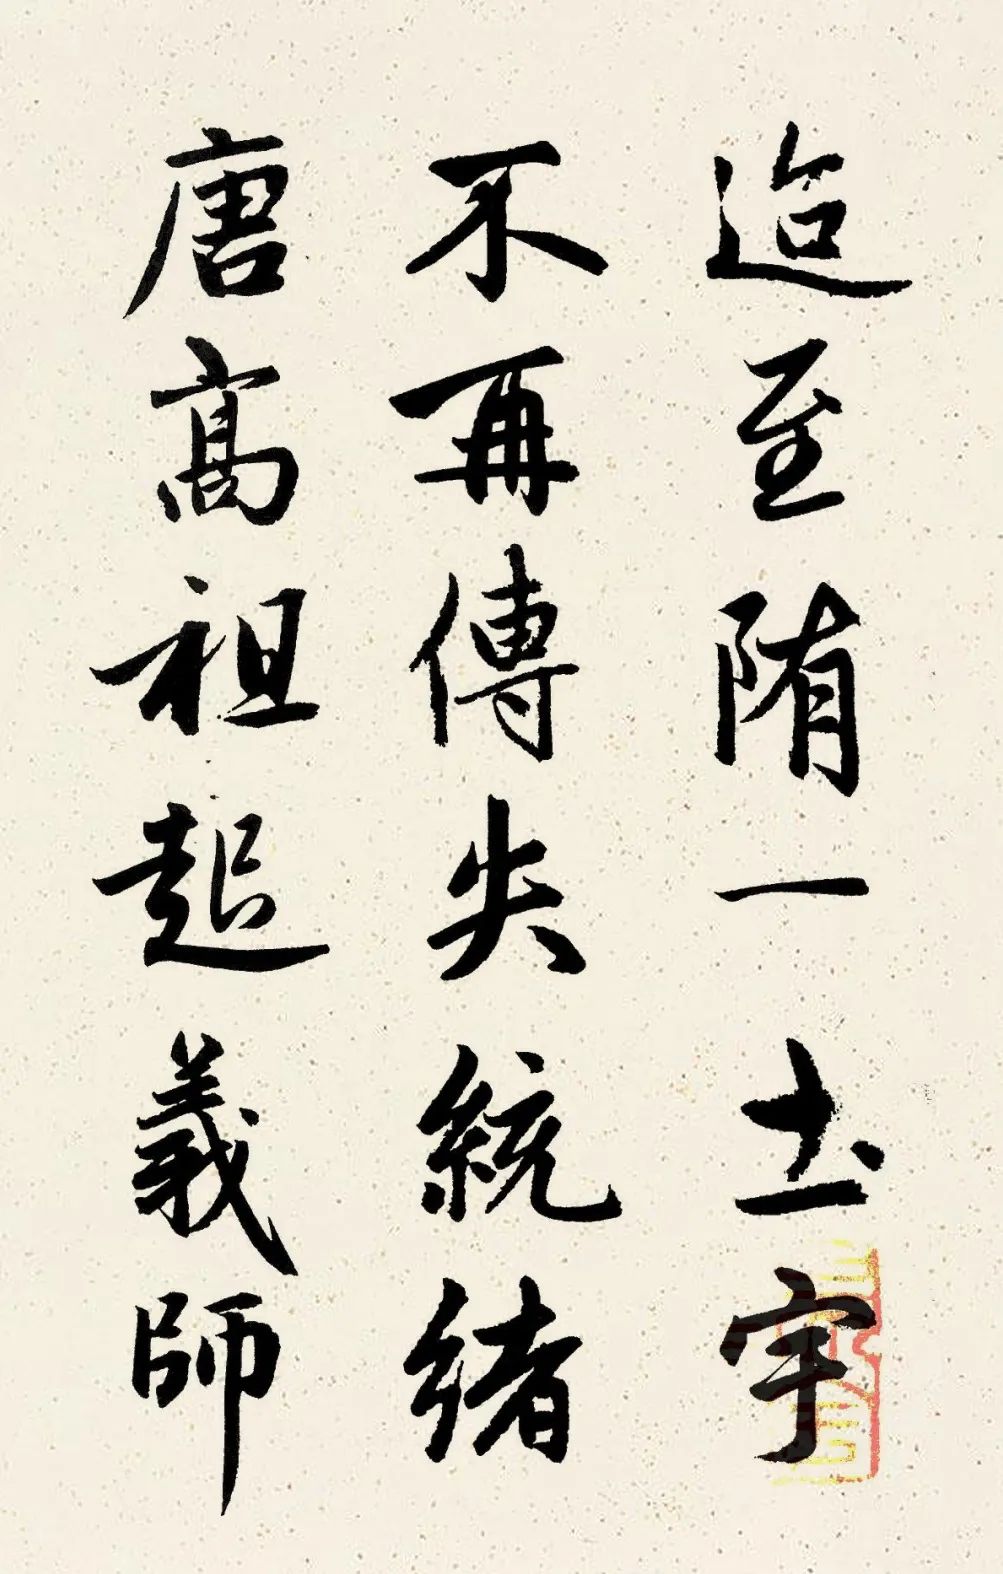 迨至隋一土宇
不再傳失統緒
唐高祖起義師